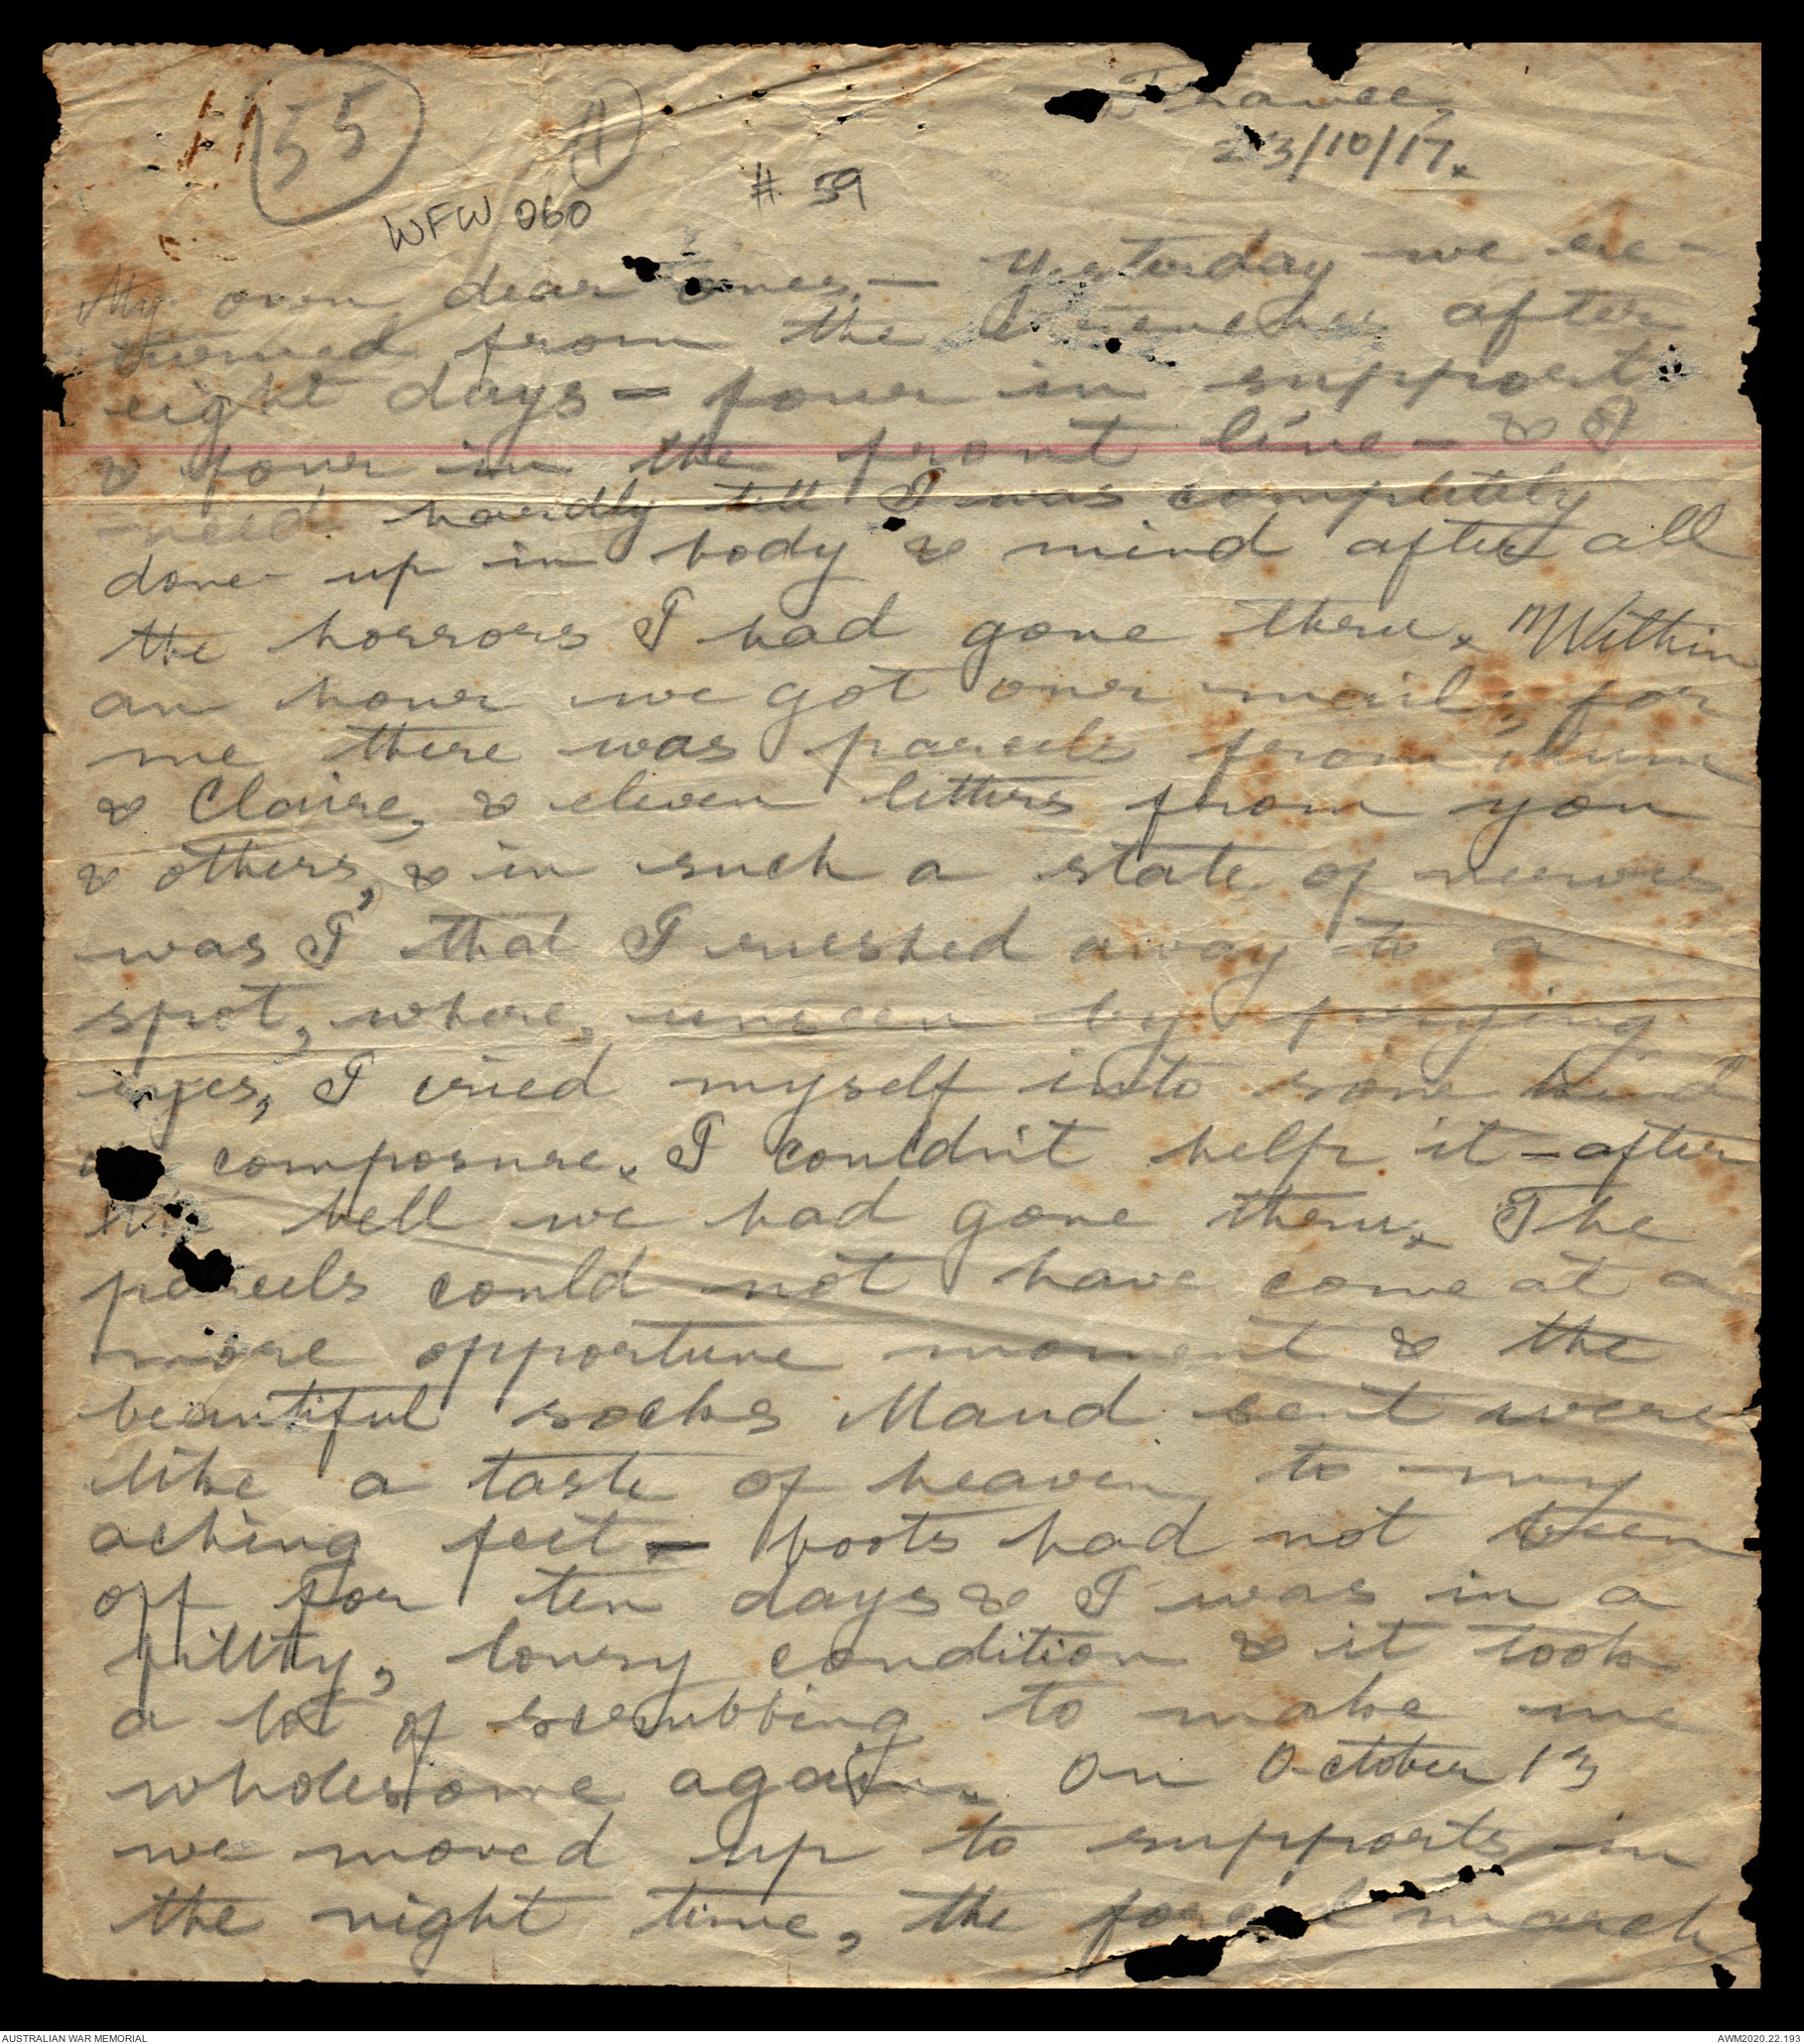 55
1
France,
23/10/17.
# 59
WFW 060
My own dear ones, - Yesterday we re-
turned from the trenches after
eight days - four in support
& four in the front line - & I
need hardly tell I was completely
done up in body & mind after all
the horrors I had gone thru. Within
an hour we got our mail; for
me there was parcels from Mum
& Claire, & eleven letters from you
& others, & in such a state of nerves
was I that I rushed away to a
spot, where, unseen by prying
eyes, I cried myself into some kind
composure. I couldn't help it - after
the hell we had gone thru. The
parcels could not have come at a
more opportune moment & the
beautiful socks Maud sent were
like a taste of heaven to my
aching feet - boots had not been
off for ten days & I was in a
filthy, lousy condition & it took
a lot of scrubbing to make me
wholesome again. On October 13
we moved up to supports in
the night time, the march
AUSTRALIAN WAR MEMORIAL
AWM2020.22.193